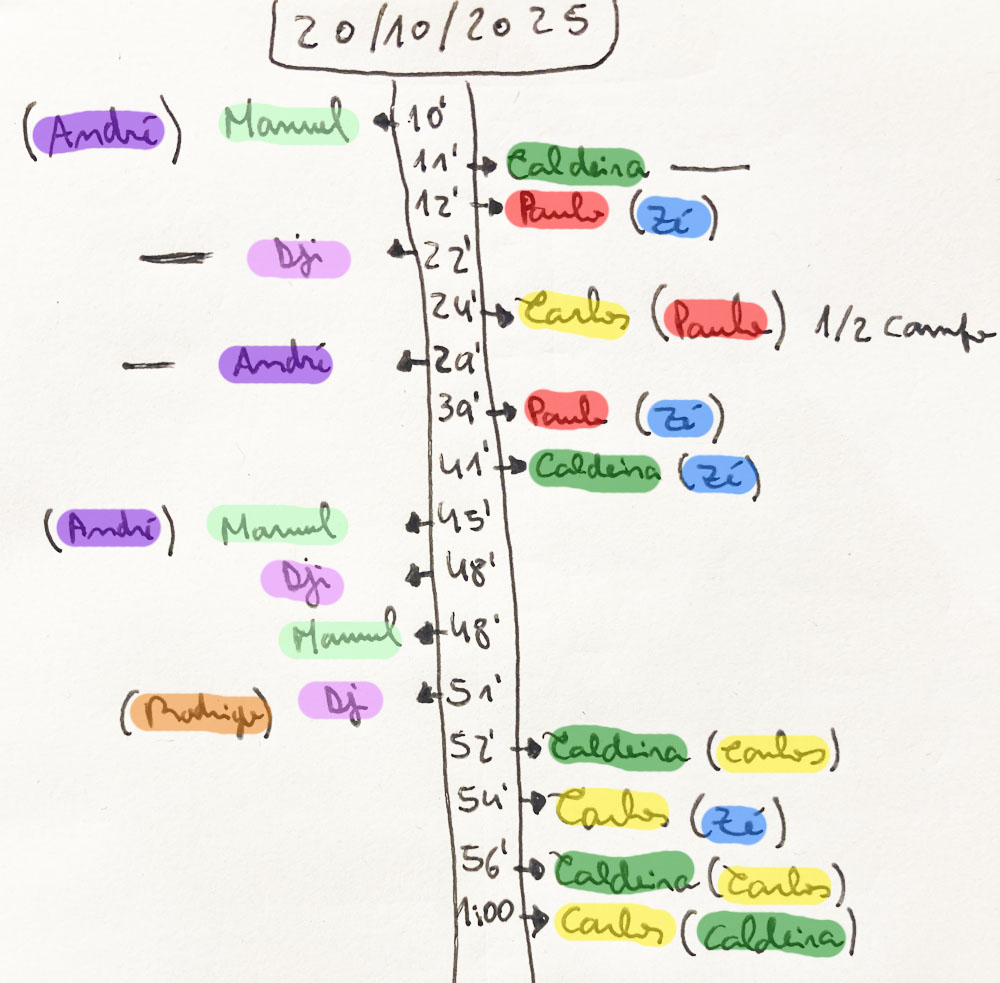 20/10/2025
(André) Manuel 10'
11' Caldeira —
12' Paulo (Zé)
— Dji 22'
24' Carlos (Paulo) 1/2 campo
— André 29'
39' Paulo (Zé)
41' Caldeira (Zé)
(André) Manuel 45'
Dji 48'
Manuel 48'
(Rodrigo) Dji 51'
52' Caldeira (Carlos)
54' Carlos (Zé)
56' Caldeira (Carlos)
1:00 Carlos (Caldeira)